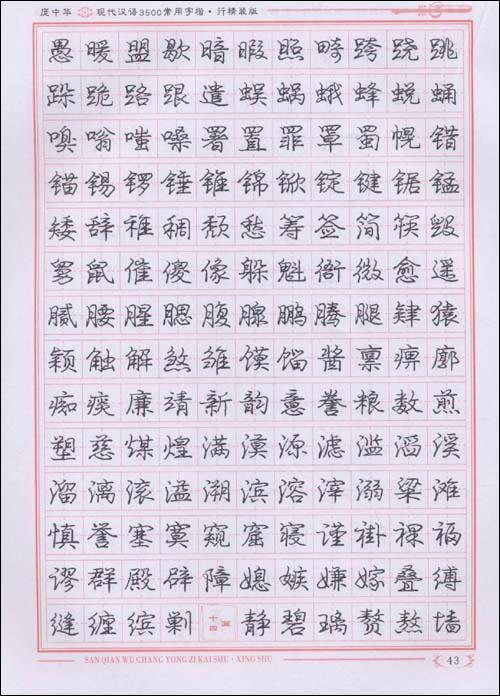 庞中华 现代汉语3500常用字楷·行精装版
愚暖盟歇暗暇照畸跨跷跳
跺跪路跟遣蜈蜗蛾蜂蜕蛹
嗅嗡嗤嗓署置罪罩蜀幌错
锚锡锣锤锥锦锨锭键锯锰
矮辞稚稠颓愁筹签简筷毁
舅鼠催傻像躲魁衙微愈遥
腻腰腥腮腹腺鹏腾腿肆猿
颖触解煞雏馍馏酱禀痹廓
痴痰廉靖新韵意誊粮数煎
塑慈煤煌满漠源滤滥滔溪
溜漓滚溢溯滨溶滓溺粱滩
慎誉塞寞窥窟寝谨褂裸福
谬群殿辟障媳嫉嫌嫁叠缚
缝缠缤剿十四画静碧璃赘熬墙
SAN QIAN WU CHANG YONG ZI KAI SHU · XING SHU
43